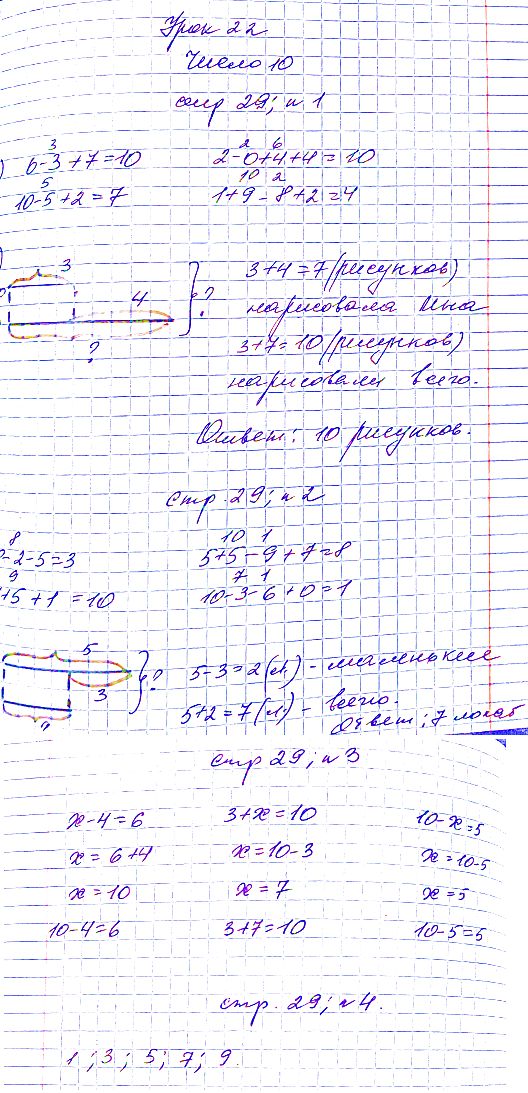 Урок 22
Число 10
стр 29; н 1
3
2 6
) 6-3+7=10 2-0+4+4=10
5
10 2
10-5+2=7 1+9-8+2=4
3
3+4=7 (рисунков)
4
?
нарисовала Ина
?
3+7=10 (рисунков)
нарисовали всего.
Ответ: 10 рисунков.
стр. 29; н 2
8
10 1
-2-5=3 5+5-9+7=8
9
7 1
+5+1=10 10-3-6+0=1
5
5-3=2 (л.) - маленькие
?
3
5+2=7 (л) - всего.
?
Ответ; 7 лопат
стр 29; н 3
x-4=6 3+x=10 10-x=5
x=6+4 x=10-3 x=10-5
x=10 x=7 x=5
10-4=6 3+7=10 10-5=5
стр. 29; н 4.
1; 3; 5; 7; 9.